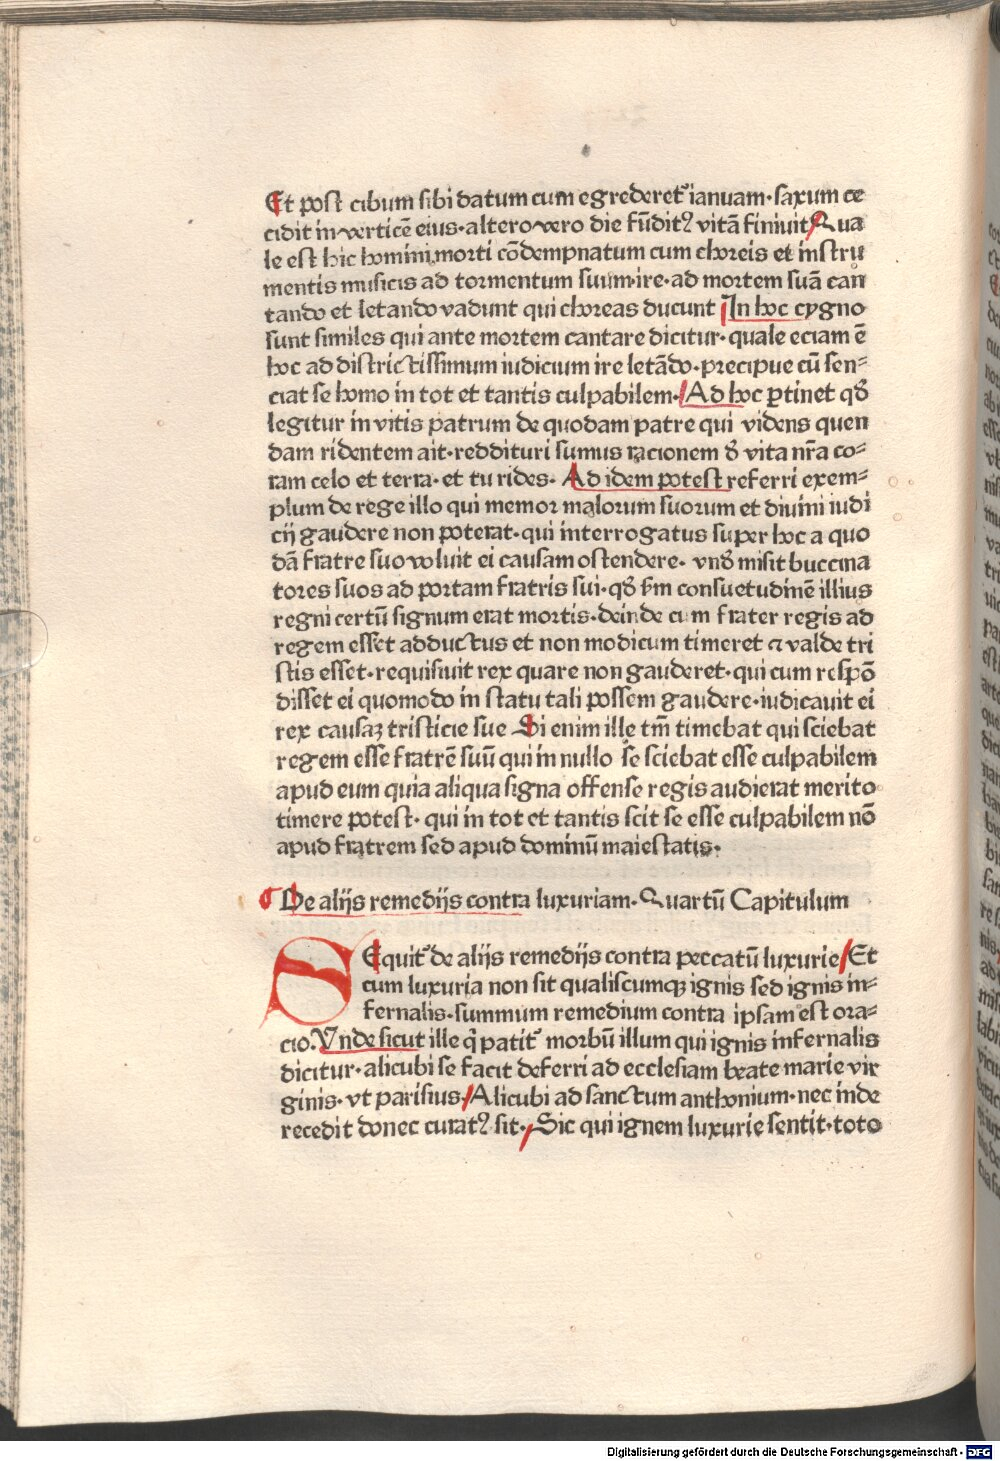 Et post cibum sibi datum cum egrederet᷒ ianuam·saxum ce
cidit in verticē eius·altero vero die fūditꝰ vitā finiuit Qua
le est hic homini morti cōdempnatum cum choreis et instru
mentis musicis ad tormentum suum·ire·ad mortem suā can
tando et letando vadunt qui choreas ducunt In hoc cygno
sunt similes qui ante mortem cantare dicitur·quale eciam ē
hoc ad districtissimum iudicium ire letādo·precipue cū sen⸗
ciat se homo in tot et tantis culpabilem·Ad hoc ꝑtinet qđ
legitur in vitis patrum de quodam patre qui videns quen
dam ridentem ait·reddituri sumus racionem đ vita nr̄a co⸗
ram celo et terra·et tu rides·Ad idem potest referri exem⸗
plum de rege illo qui memor malorum suorum et diuini iudi
cij gaudere non poterat·qui interrogatus super hoc a quo
dā fratre suo voluit ei causam ostendere·vnđ misit buccina
tores suos ad portam fratris sui·qđ ẜm consuetudinē illius
regni certū signum erat mortis·deinde cum frater regis ad
regem esset adductus et non modicum timeret ⁊ valde tri
stis esset·requisiuit rex quare non gauderet·qui cum respō
disset ei quomodo in statu tali possem gaudere·iudicauit ei
rex causaꝫ tristicie sue Si enim ille tm̄ timebat qui sciebat
regem esse fratrē suū qui in nullo se sciebat esse culpabilem
apud eum quia aliqua signa offense regis audierat merito
timere potest·qui in tot et tantis scit se esse culpabilem nō
apud fratrem sed apud dominū maiestatis·
De alijs remedijs contra luxuriam·Quartū Capitulum
SEquit᷒ de alijs remedijs contra peccatū luxurie Et
cum luxuria non sit qualiscumqꝫ ignis sed ignis in⸗
fernalis·summum remedium contra ipsam est ora⸗
cio·Vnde sicut ille q̇ patit᷒ morbū illum qui ignis infernalis
dicitur·alicubi se facit deferri ad ecclesiam beate marie vir
ginis·vt parisius·Alicubi ad sanctum anthonium·nec inde
recedit donec curatꝰ sit·Sic qui ignem luxurie sentit·toto
Digitalisierung gefördert durch die Deutsche Forschungsgemeinschaft - DFG